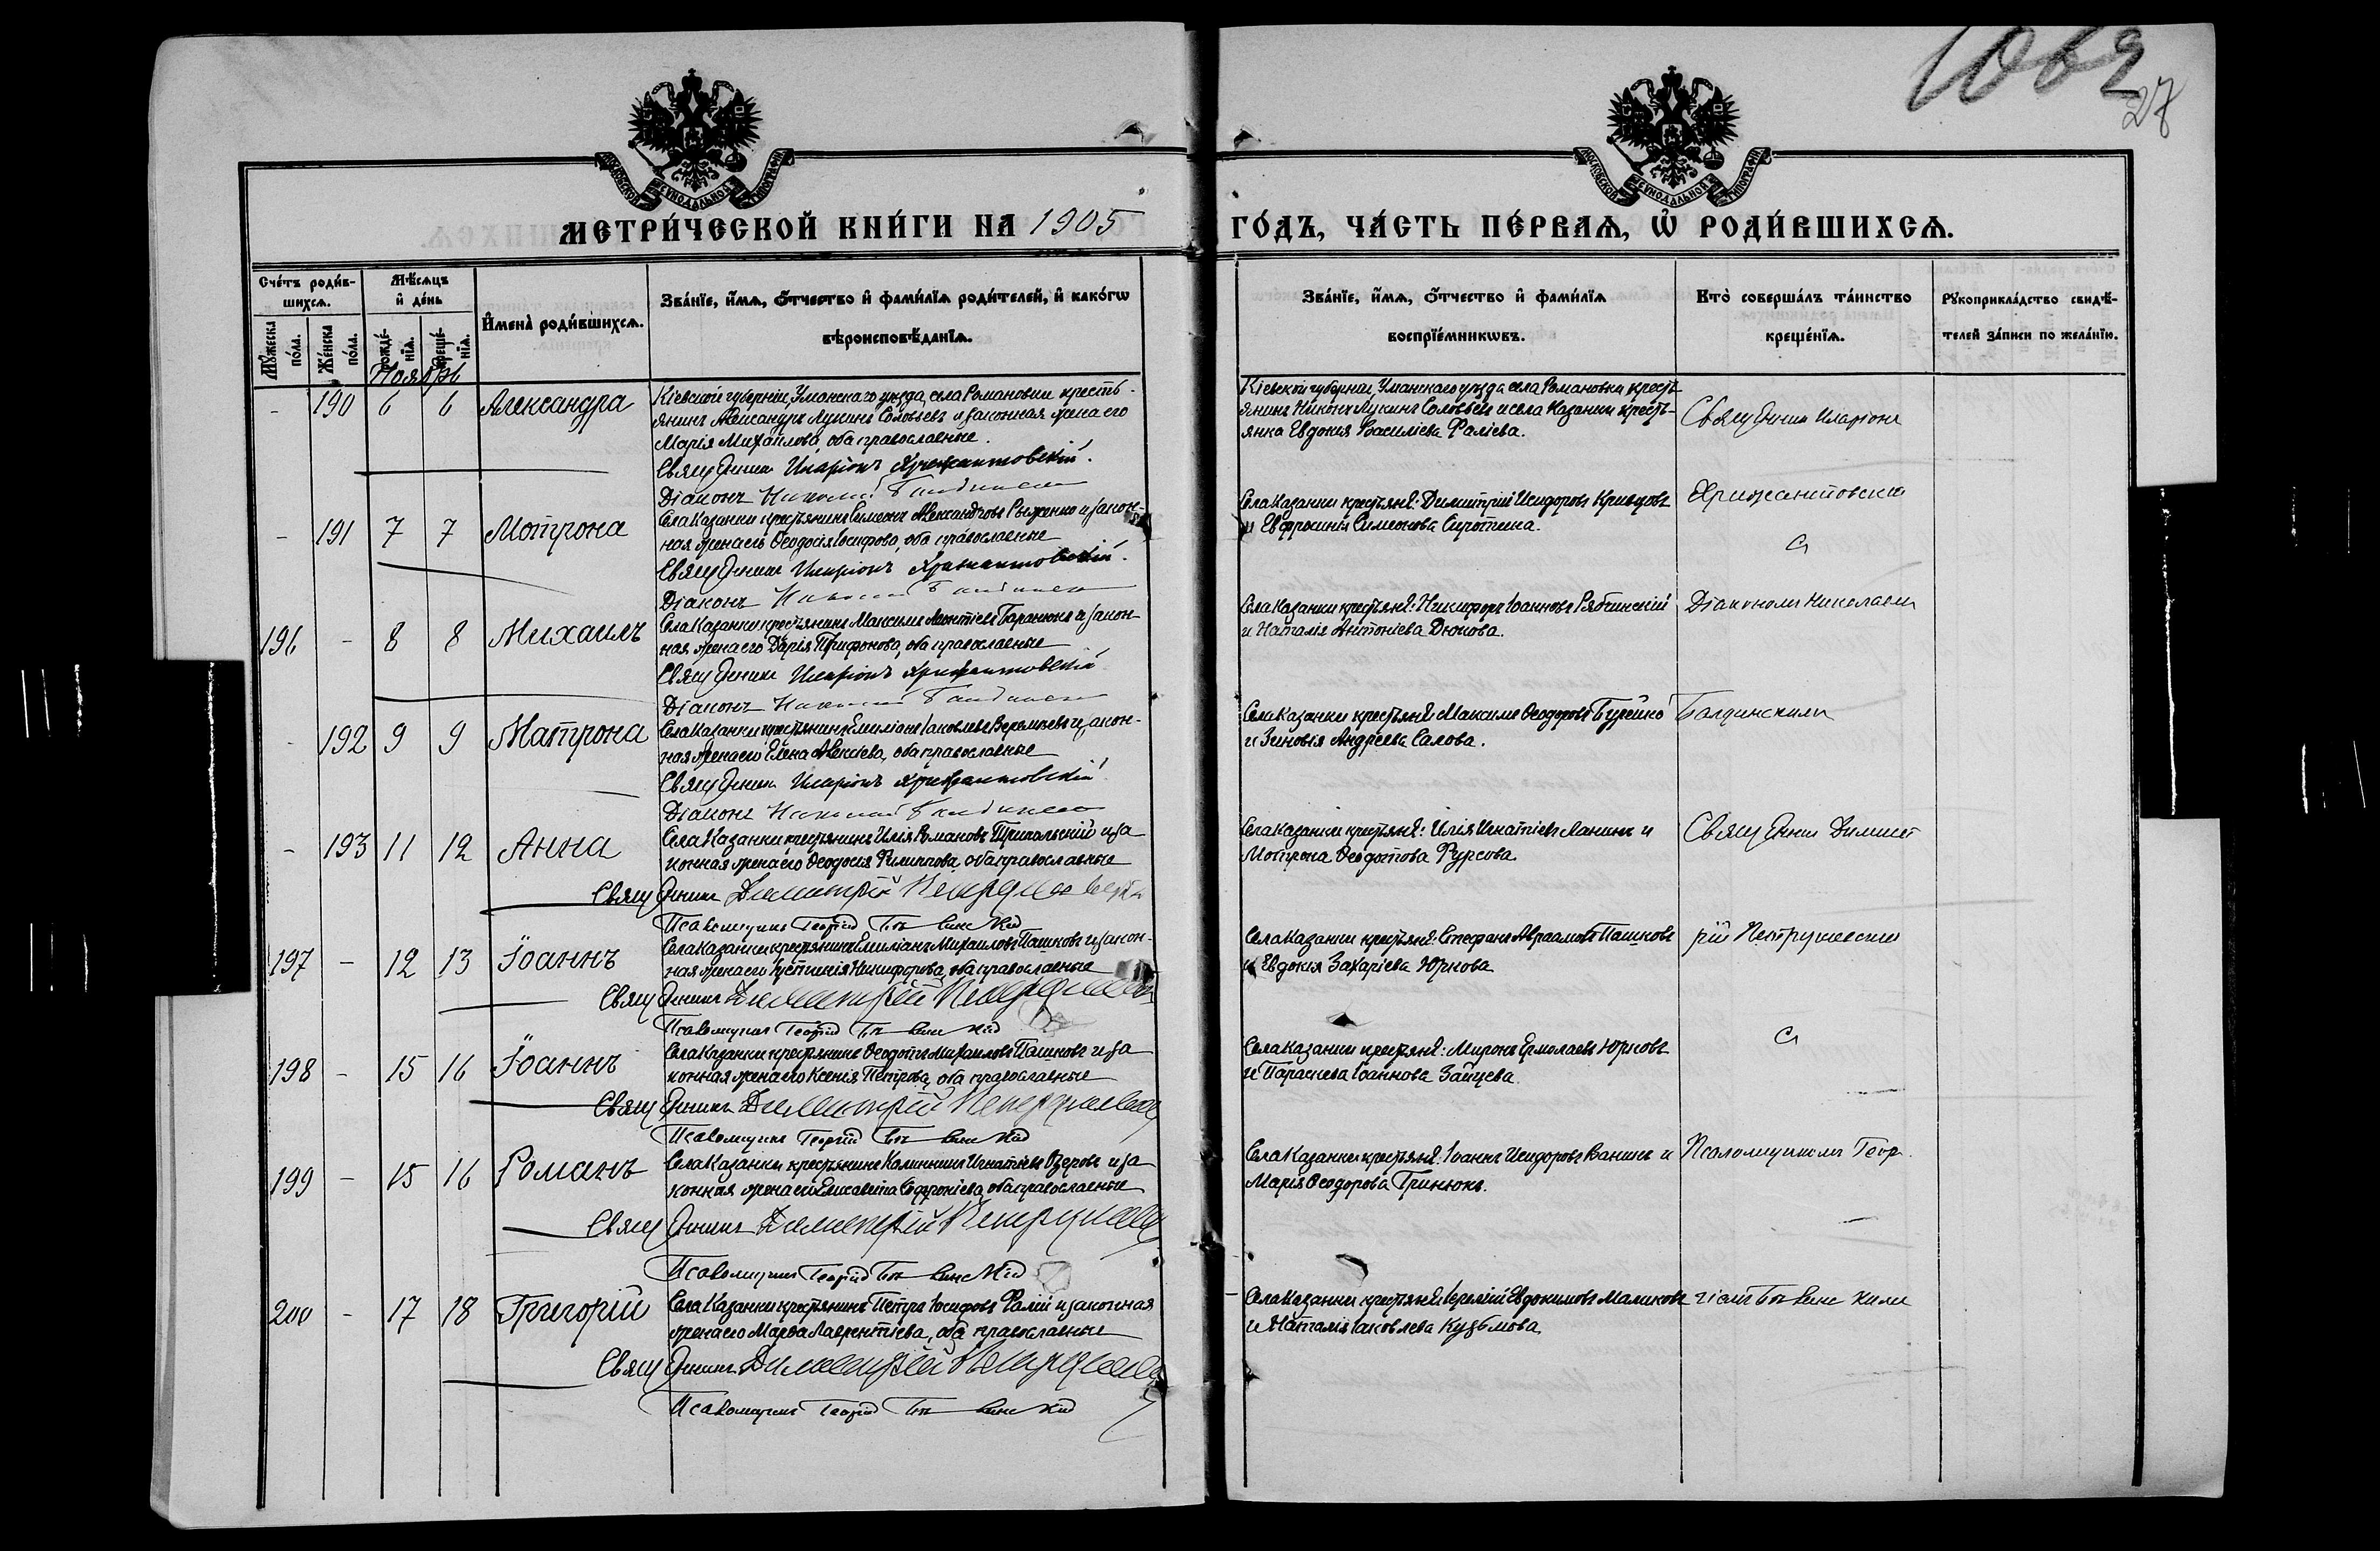 1062
27
МОСКОВСКОЙ СѴНОДАЛЬНОЙ ТИПОГРАФІИ
МОСКОВСКОЙ СѴНОДАЛЬНОЙ ТИПОГРАФІИ
МЕТРИ́ЧЕСКОЙ КНИ́ГИ НА 1905
ГО́ДЪ, ЧА́СТЬ ПЕ́РВАѦ, Ѡ҆ РОДИ́ВШИХСѦ.
Сче́тъ роди́в-
шихсѧ.
Мꙋ́жеска по́ла.
Же́нска по́ла.
Мѣ́сѧцъ
и҆ де́нь
рожде́-
нїѧ.
креще́-
нїѧ.
И҆мена̀ роди́вшихсѧ.
Зва́нїе, и҆́мѧ, ѻ҆́тчество и҆ фами́лїѧ роди́телей, и҆ како́гѡ
вѣроисповѣ́данїѧ.
Зва́нїе, и҆́мѧ, ѻ҆́тчество и҆ фами́лїѧ
воспрїе́мникѡвъ.
Кто̀ соверша́лъ та́инство
креще́нїѧ.
Рꙋкоприкла́дство свидѣ́-
телей за́писи по жела́нїю.
Ноябрь
- 190 6 6 Александра
Кіевской губерніи, Уманскаго уѣзда, села Романовки кресть-
янинъ Александръ Лукинъ Соловьевъ и законная жена его
Марія Михаилова, оба православные.
Священникъ Иларіонъ Хрижантовскій.
Діаконъ Николай
Кіевской губерніи, Уманскаго уѣзда села Романовки кресть-
янинъ Никонъ Лукинъ Соловьевъ и села Казанки кресть-
янка Евдокія Василіева Фаліева.
Священник Иларіон
- 191 7 7 Мотрона
Села Казанки крестьянинъ Симеонъ Александровъ Рыженко и закон-
ная жена его Ѳеодосія Іосифова, оба православные
Священникъ Иларіонъ Хрижантовскій.
Діаконъ Николай
Села Казанки крестьянѣ: Димитрій Исидоровъ Кривцовъ
и Евфросинія Симеонова Сиротина.
Хрижантовский
с
196 - 8 8 Михаилъ
Села Казанки крестьянинъ Максимъ Леонтіевъ Баранюкъ и закон-
ная жена его Дарія Трифонова, оба православные
Священникъ Иларіонъ Хрижантовскій
Діаконъ Николай
Села Казанки крестьянѣ: Никифоръ Іоанновъ Рябчинскій
и Наталія Антоніева Дюкова.
Діакономъ Николаемъ
- 192 9 9 Матрона
Села Казанки крестьянинъ Емиліанъ Іаковлевъ Веремьевъ и закон-
ная жена его Елена Алексіева, оба православные
Священникъ Иларіонъ Хрижантовскій
Діаконъ Николай
Села Казанки крестьянѣ Максимъ Ѳеодоровъ Бурейко
и Зиновія Андреева Салова.
Балдинскимъ
- 193 11 12 Анна
Села Казанки крестьянинъ Илія Романовъ Трипольскій и за
конная жена его Ѳеодосія Филиппова, оба православные
Священникъ Димитрій
Псаломщикъ Георгій
Села Казанки крестьянѣ: Илія Игнатіевъ Ланинъ и
Мотрона Ѳеодотова Фурсова.
Священник Димит
197 - 12 13 Іоаннъ
Села Казанки крестьянинъ Емиліанъ Михаиловъ Пашковъ и закон-
ная жена его Іустинія Никифорова, оба православные
Священникъ Димитрій
Псаломщикъ Георгій
Села Казанки крестьянѣ: Стефанъ Авраамовъ Пашковъ
и Евдокія Захаріева Юркова
рій Петруковский
198 - 15 16 Іоаннъ
Села Казанки крестьянинъ Ѳеодотъ Михаиловъ Пашковъ и за
конная жена его Ксенія Петрова, оба православные
Священникъ Димитрій
Псаломщикъ Георгій
Села Казанки крестьянѣ: Миронъ Ермолаевъ Юрковъ
и Параскева Іоаннова Зайцева.
с
199 - 15 16 Романъ
Села Казанки крестьянинъ Калинникъ Игнатіевъ Озеровъ и за
конная жена его Елисавета Софроніева, оба православные
Священникъ Димитрій
Псаломщикъ Георгій
Села Казанки крестьянѣ: Іоаннъ Исидоровъ Ванинъ и
Марія Ѳеодорова Гринюкъ.
Псаломщикомъ Геор
200 - 17 18 Григорій
Села Казанки крестьянинъ Петръ Іосифовъ Фалій и законная
жена его Марѳа Лаврентіева, оба православные
Священникъ Димитрій
Псаломщикъ Георгій
Села Казанки крестьянѣ: Іеремій Евдокимовъ Маликовъ
и Наталія Іаковлева Кузьмова
гіемъ